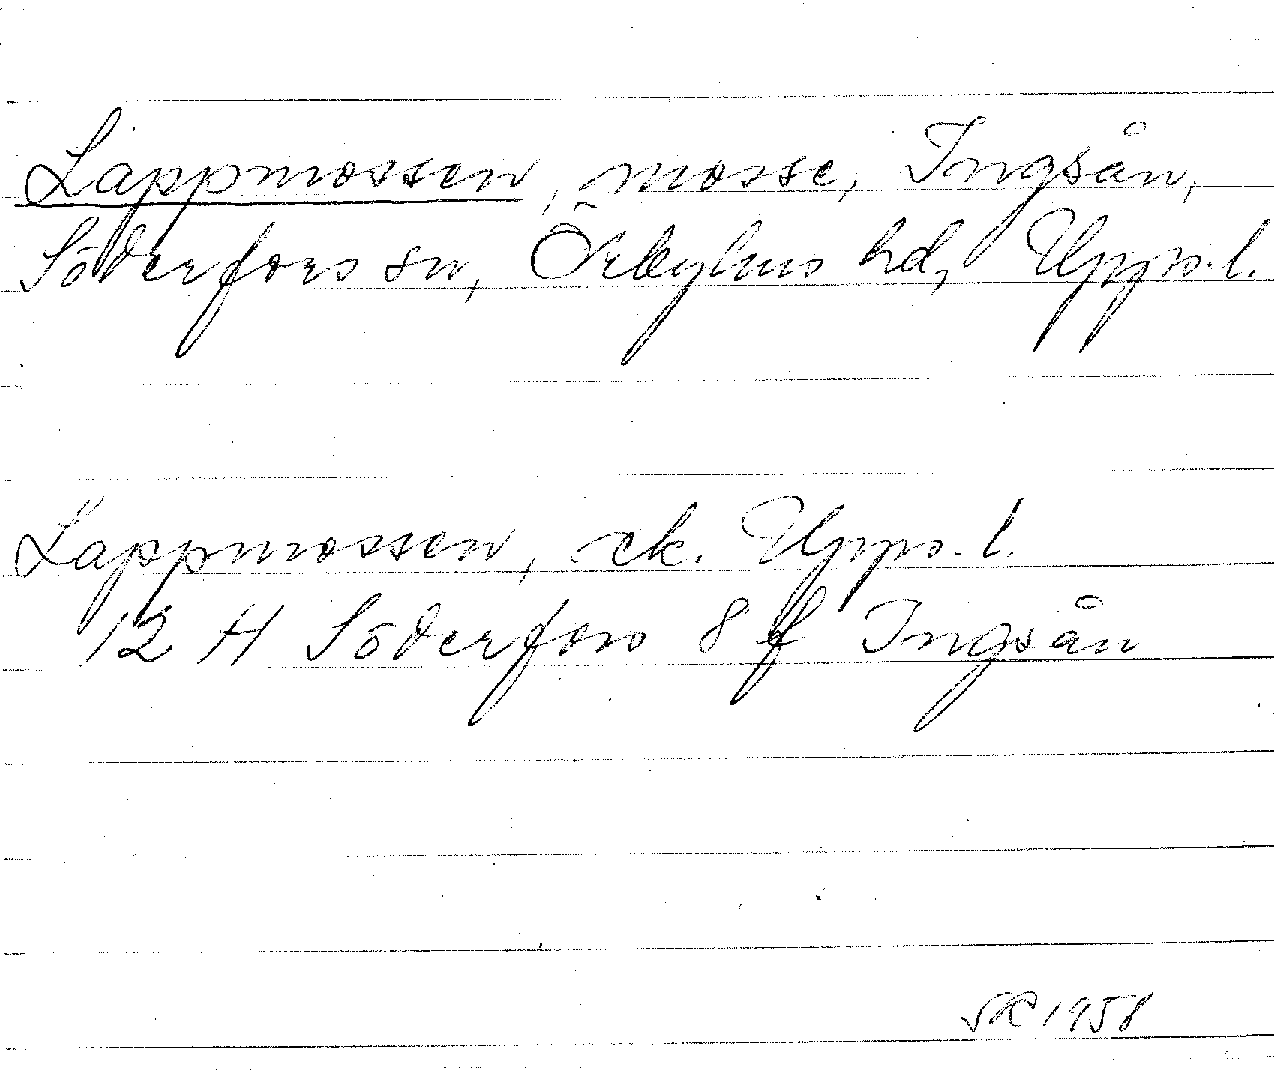 Lappmossen, mosse, Ingsån,
Söderfors sn, Örbyhus hd, Upps.l.
Lappmossen, ek. Upps. l.
12 H Söderfors 8 f Ingsån
SK 1958